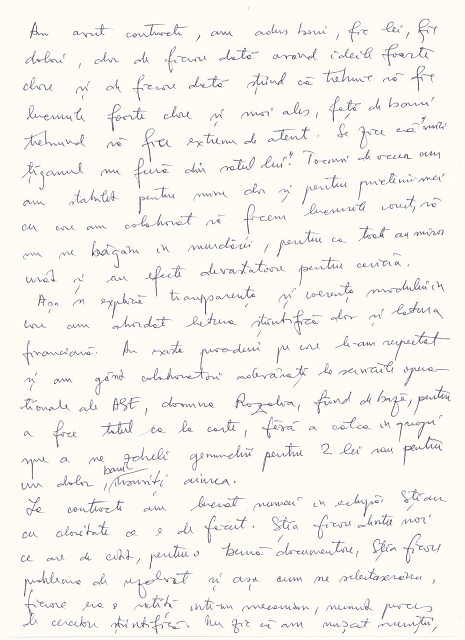 Am avut contracte, am adus bani, fie lei, fie
dolari, dar de fiecare dată având ideile foarte
clare și de fiecare dată știind că trebuie să fie
lucrurile foarte clare și mai ales, față de bani
trebuind să fie extrem de atent. Se zice că "nici
țiganul nu fură din satul lui". Tocmai de aceea am
am stabilit pentru mine dar și pentru prietenii mei
cu care am colaborat să facem lucrurile corect, să
nu ne băgăm în murdării, pentru ca toate au miros
urât și au efecte devastatoare pentru carieră.
Așa se explică transparența și coerența modului în
care am abordat latura științifică dar și latura
financiară. Au existat proceduri pe care le-am respectat
și am găsit colaboratori adevărați la serviciile opera-
ționale ale ASE, doamna Rozalva, fiind de bază, pentru
a face totul ca la carte, fără a călca în gropi
spre a ne zdreli genunchii pentru 2 lei sau pentru
un dolar, bani munciți aiurea.
La contracte am lucrat numai în echipă. Știam
cu claritate ce e de făcut. Știa fiecare dintre noi
ce are de citit, pentru o bună documentare, știa fiecare
problema de rezolvat și așa cum ne selectaserăm,
fiecare era o rotiță într-un mecanism, numit proces
de cercetare științifică. Nu zic că am mișcat munții,